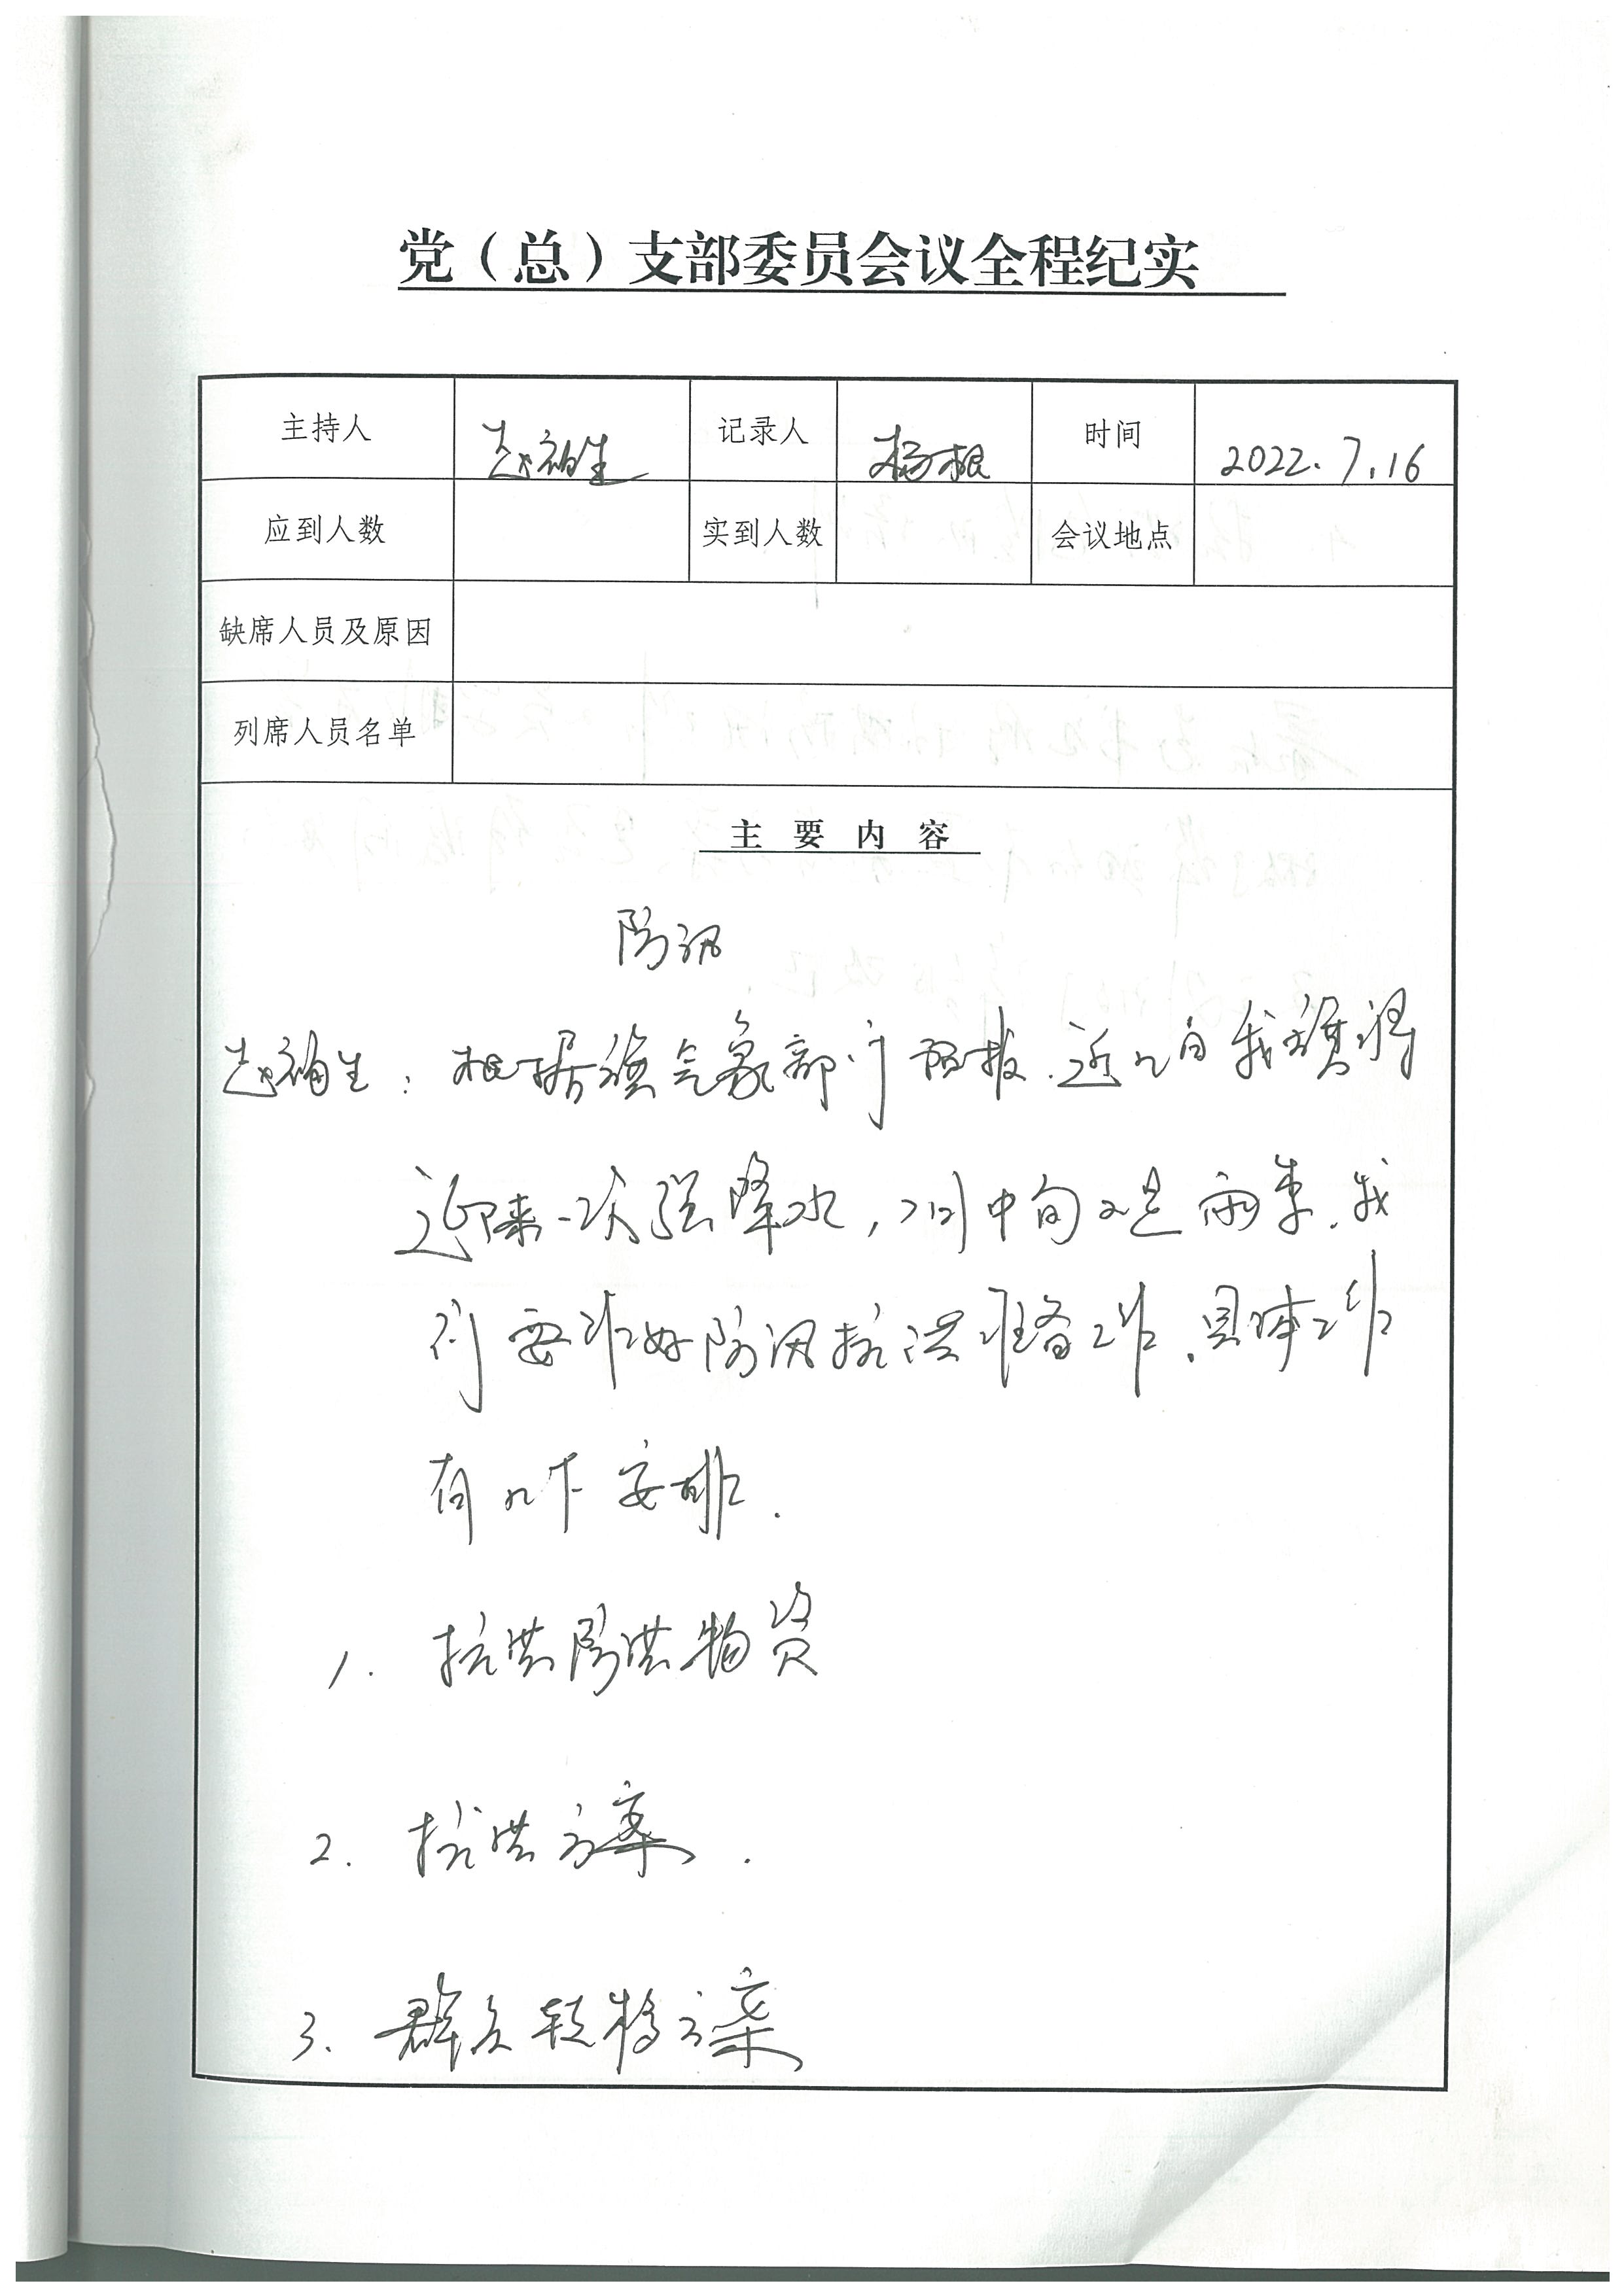 党（总）支部委员会议全程纪实
主持人 赵福生 记录人 杨根 时间 2022.7.16
应到人数 实到人数 会议地点
缺席人员及原因
列席人员名单
主要内容
防汛
赵福生：根据旗气象部门预报.近几日我旗将
迎来一次强降水，7月中旬又是雨季.我
们要作好防汛抗洪准备工作.具体工作
有以下安排.
1. 抗洪防洪物资
2. 抗洪方案.
3. 群众转移方案